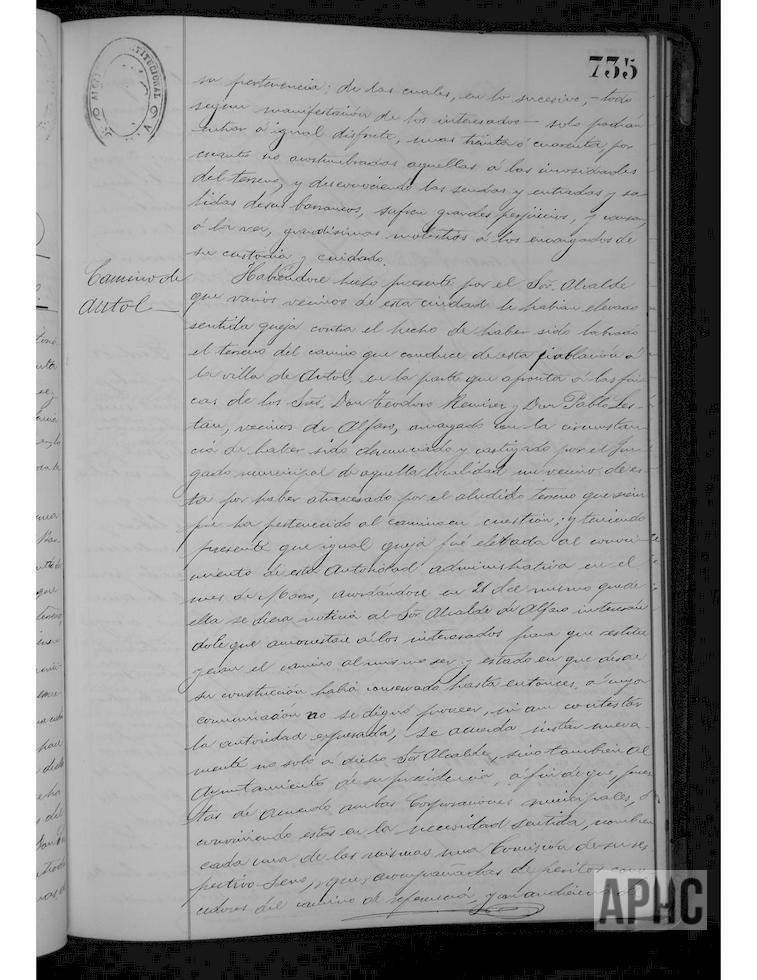 735
su pertenencia; de las cuales, en lo sucesivo, - todo
segun manifestación de los interesados - solo podrán
entrar á igual disfrute, unas treinta ó cuarenta, por
cuanto no acostumbradas aquellas á las
del terreno, y desconociendo las sendas y entradas y sa-
lidas de sus barrancos, sufren grandes perjuicios, y causan,
á la vez, grandisimas molestias á los encargados de
su custodia y cuidado.
Camino de
Autol
Habiendose hecho presente por el Sor. Alcalde
que varios vecinos de esta ciudad le habian elevado
sentida queja contra el hecho de haber sido labrado
el terreno del camino que conduce de esta población á
la villa de Autol, en la parte que afronta á las fin-
cas de los Sres. Don Teodoro Ramirez y Don Pablo
vecinos de Alfaro, con la circunstan-
cia de haber sido denunciado y castigado por el Juz-
gado municipal de aquella localidad un vecino de es-
ta por haber atravesado por el aludido terreno que siem-
pre ha pertenecido al camino en cuestión; y teniendo
presente que igual queja fué elevada al conoci-
miento de esta Autoridad administrativa en el
mes de Marzo, acordandose en 21 del mismo que de
ella se diera noticia al Sor. Alcalde de Alfaro interesan-
dole que amonestare á los interesados para que restitu-
yeran el camino al mismo ser y estado en que desde
su construcción habia conservado hasta entonces, á cuya
comunicación no se dignó proveer, ni aun contestar
la autoridad expresada, se acuerda instar nueva-
mente no solo a dicho Sor. Alcalde, sino tambien al
Ayuntamiento de su presidencia, á fin de que, pues-
tas de acuerdo ambas Corporaciones municipales, ó
conviniendo estas en la necesidad sentida, nombren
cada una de las mismas una Comisión de su res-
pectivo seno, y que, acompañadas de peritos cono-
cedores del camino de referencia, y
APHC